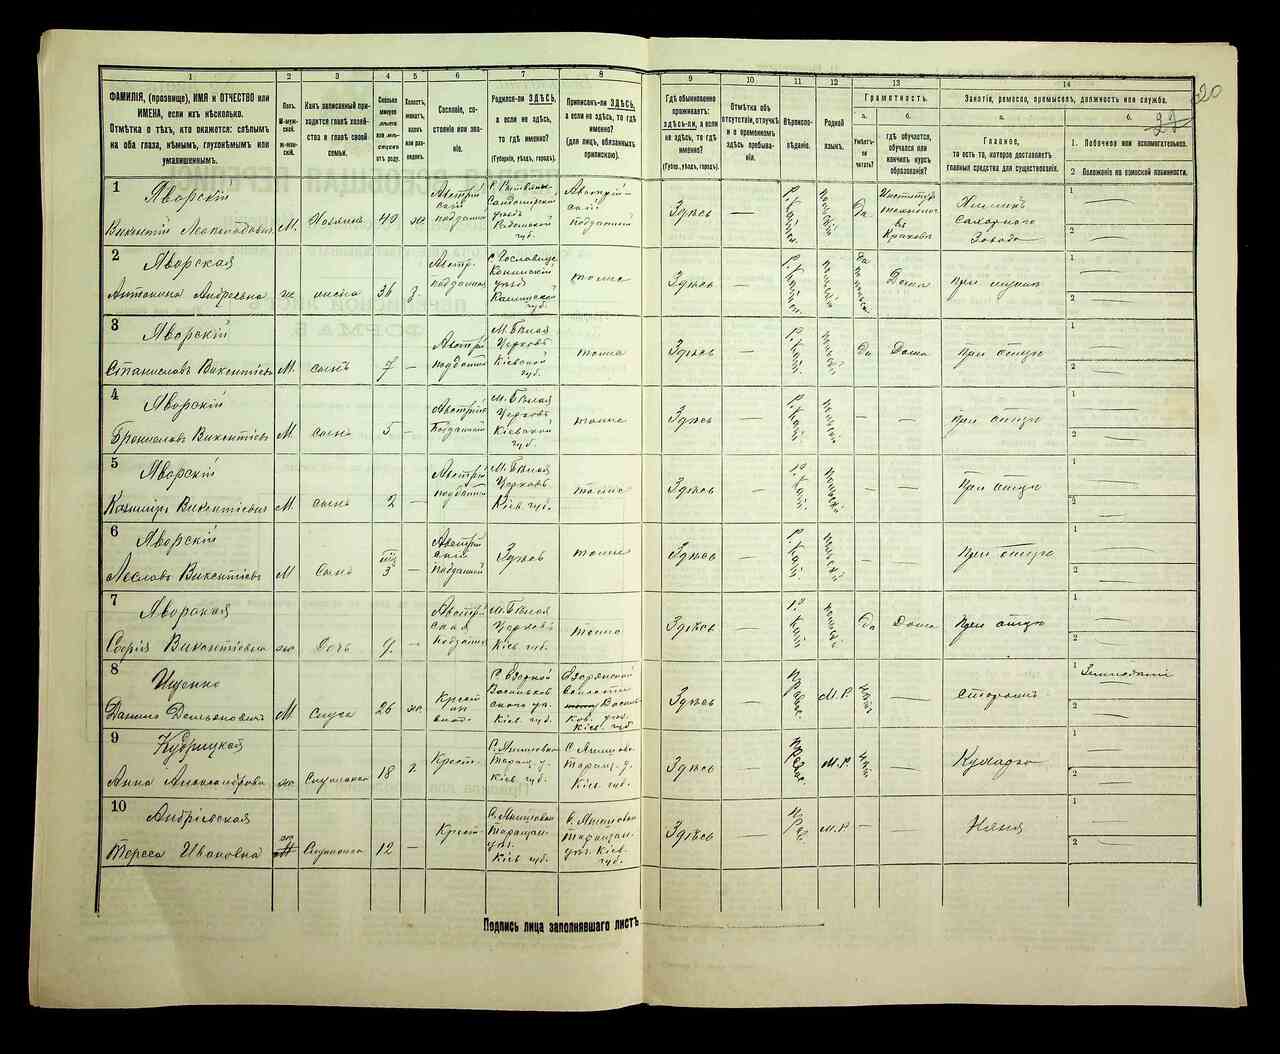 20
27
1
2
3
4
5
6
7
8
9
10
11
12
13
14
ФАМИЛІЯ, (прозвище), ИМЯ и ОТЧЕСТВО или
ИМЕНА, если ихъ нѣсколько.
Отмѣтка о тѣхъ, кто окажется: слѣпымъ
на оба глаза, нѣмымъ, глухонѣмымъ или
умалишеннымъ.
Полъ.
М-муж-
ской.
Ж-жен-
скій.
Какъ записанный при-
ходится главѣ хозяй-
ства и главѣ своей
семьи.
Сколько
минуло
лѣтъ
или мѣ-
сяцевъ
отъ роду.
Холостъ,
женатъ,
вдовъ
или раз-
веденъ.
Сословіе, со-
стояніе или зва-
ніе.
Родился-ли ЗДѢСЬ,
а если не здѣсь,
то гдѣ именно?
(Губернія, уѣздъ, городъ).
Приписанъ-ли ЗДѢСЬ,
а если не здѣсь, то гдѣ
именно?
(для лицъ, обязанныхъ
припискою).
Гдѣ обыкновенно
проживаетъ:
здѣсь-ли, а если
не здѣсь, то гдѣ
именно?
(Губер., уѣздъ, городъ).
Отмѣтка объ
отсутствіи, отлучкѣ
и о временномъ
здѣсь пребыва-
ніи.
Вѣроиспо-
вѣданіе.
Родной
языкъ.
Грамотность.
а.
Умѣетъ-
ли
читать?
б.
гдѣ обучается,
обучался или
кончилъ курсъ
образованія?
Занятіе, ремесло, промыселъ, должность или служба.
а.
Главное,
то есть то, которое доставляетъ
главныя средства для существованія.
б.
1. Побочное или вспомогательное.
2 Положеніе по воинской повинности.
1
Яворскій
Викентій Леопольдовичъ
М.
Хозяинъ
49
ж
Австрій
скій
подданный
Сандомирской
уѣзд
Радомской
губ.
Австрій-
скій
подданный
Здѣсь
—
Р. Катол.
польскій
Да
Институт
технолог
въ
Краковѣ
Химикъ
Сахарнаго
Завода
1
2
2
Яворская
Антонина Андреевна
же
жена
36
з.
Австр.
подданная
уѣзд
губ.
тоже
Здѣсь
—
Р. Катол.
польскій
Да
Дома
При мужѣ
1
2
3
Яворскій
Станиславъ Викентіевъ
М.
сынъ
7
—
Австрій
подданный
М. Бѣлая
Церковь
Кіевской
губ.
тоже
Здѣсь
—
Р. Кат.
польскій
да
Дома
При отцѣ
1
2
4
Яворскій
Брониславъ Викентіевъ
М
сынъ
5
—
Австрій
подданный
М. Бѣлая
Церковь
Кіевской
губ.
тоже
Здѣсь
—
Р. Кат.
польскій
—
—
При отцѣ
1
2
5
Яворскій
Казиміръ Викентіевичъ
М.
сынъ
2
—
Австрій
подданный
М. Бѣлая
Церковь
Кіев. губ.
тоже
Здѣсь
—
Р. Кат.
польскій
—
—
При отцѣ
1
2
6
Яворскій
Викентіевъ
М
Сынъ
3
—
Австрій
скій
подданный
Здѣсь
тоже
Здѣсь
—
Р. Кат.
польскій
—
—
При отцѣ
1
2
7
Яворская
Софія Викентіевна
ж.
Дочь
9.
—
Австрій
ская
подданная
М. Бѣлая
Церковь
Кіев. губ.
тоже
Здѣсь
—
Р. Кат
польскій
да
Дома
При отцѣ
1
2
8
Ищенко
Данило Демьяновичъ
М
Слуга
26
ж.
Крест
Васильков
скаго уѣ.
Кіев. губ.
волости
Василь
ков. уѣз.
Кіев. губ.
Здѣсь
—
Правосл.
М.Р.
нѣтъ
—
Сторожъ
1
Земледѣліе
2
9
Кудрицкая
Анна Александрова
ж
Служанка
18
Крест.
Таращ. у.
Кіев. губ.
Таращ. у.
Кіев. губ.
Здѣсь
—
Правос.
М.Р.
нѣт
—
Кухарка
1
2
10
Андріевская
Тереса Ивановна
ж
М
Служанка
12
—
Крест.
Таращан.
уѣз.
Кіев. губ.
Таращан.
уѣз. Кіев.
губ.
Здѣсь
—
Прав
М.Р
—
—
Няня
1
2
Подпись лица заполнявшаго листъ